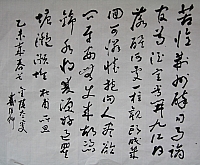 苦憶荊州醉司馬謫
官樽酒定常開九江日
落醒何處一柱觀頭眠幾
回可憐懷抱向人盡欲
問平安無使來故憑
錦水將雙淚好過瞿
塘灩澦堆 杜甫所思
乙未年